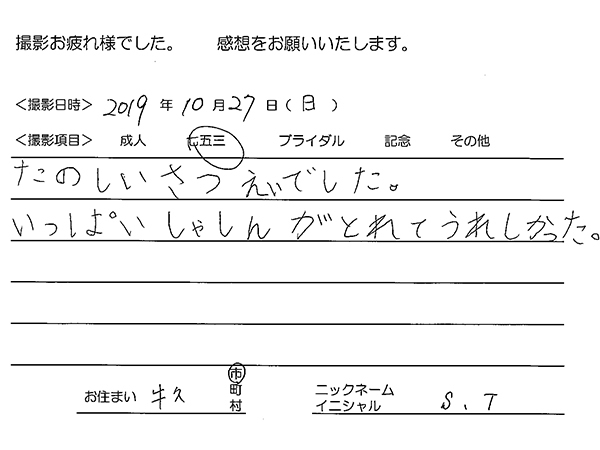 撮影お疲れ様でした。　感想をお願いいたします。
＜撮影日時＞ 2019 年 10 月 27 日（日）
＜撮影項目＞ 成人 七五三 ブライダル 記念 その他
たのしいさつえいでした。
いっぱいしゃしんがとれてうれしかった。
お住まい 牛久 市町村 ニックネーム イニシャル S.T